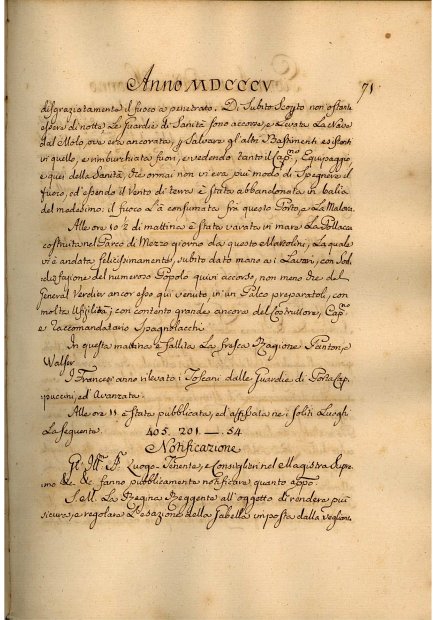 Anno MDCCCV 71
disgraziatamente il fuoco a penetrato. Di Subito Scorto non ostante
essere di notte, Le Guardie di Sanità sono accorse, e Levata La Nave
dal Molo, ove era ancorata, p Salvare gl'altri Bastimenti esistenti
in quello, e rimburchiata fuori, e vedendo tanto il Capno, Equipaggio,
e quei della Sanità, che ormai non vi era più modo di Spegnere il
fuoco, ed essendo il Vento di terra è stata abbandonata in balia
del medesimo. il fuoco L'à consumata frà questo Porto, e La Malora.
Alle ore 10 1/2 di mattina è stata varata in mare La Pollacca
costruita nel Parco di Mezzo giorno da questo Mattolini, La quale
vi è andata felicissimamente, subito dato mano a i Lavori, con Sod-
disfazione del numeroso Popolo quivi accorso, non meno che del
General Verdier ancor esso qui venuto, in un Palco preparatoli, con
molta Ufizilità; con contento grande ancora del Costruttore, Capno
e Raccomandatario Spagnolacchi.
In questa mattina è fallita La fresca Ragione Panton, e
Walser
I Francesi anno rilevato i Toscani dalle Guardie di Porta Cap-
puccini, ed Avanzata.
Alle ore 11. è stata pubblicata, ed affissata ne i soliti Luoghi
La seguente. 405. 201 —. 54.
Notificazione
Gl' Luogo-Tenente, e Consiglieri nel Magistra Supre-
mo &c. &c. fanno pubblicamente notificare quanto appo
S. M. La Regina Reggente all'oggetto di rendere più
sicura, e regolare L'esazione della Gabella imposta dalla veglian-